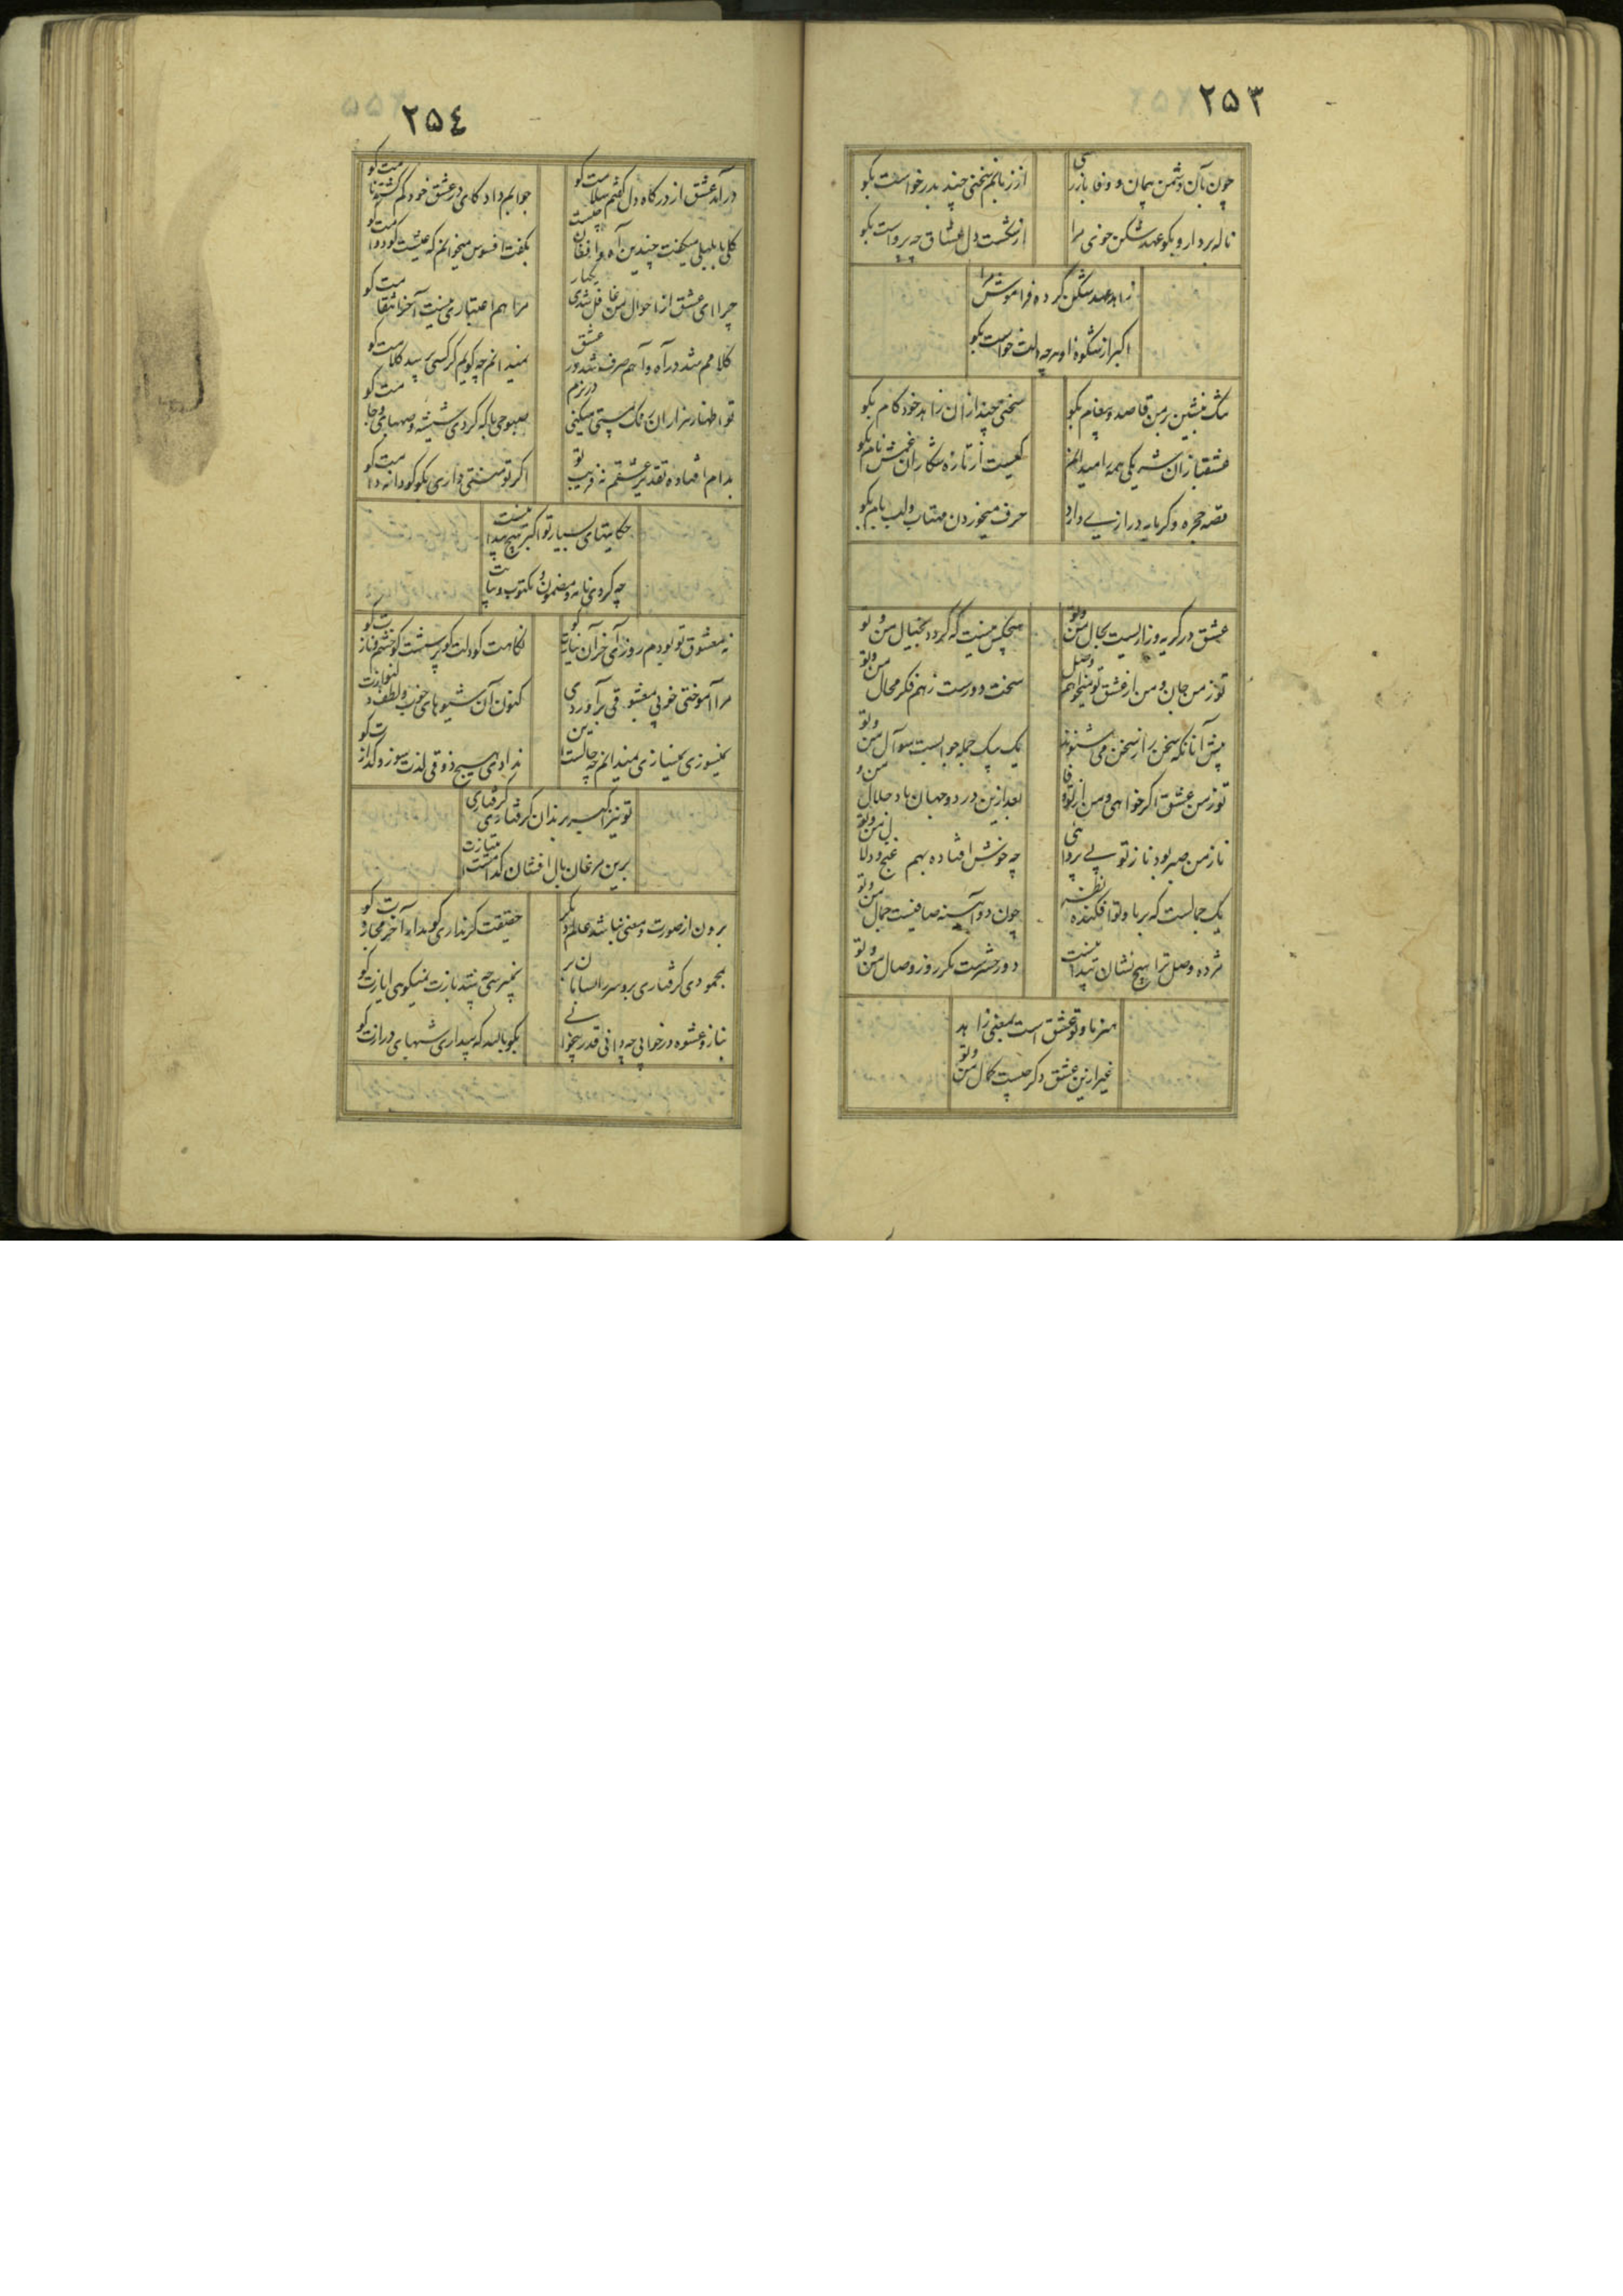 ۲۵۳
چون بآن دشمن پیمان و وفا بازرسی
از زبانم سخنی چند بدرخواست بگو
ناله بردار و بگو عهد شکن خونی مرا
از شکست دل عشاق چه پرواست بگو
زاهد عهد شکن کرده فراموش مرا
اکبر از شکوه او هرچه دلت خواست بگو
بنشین بر من قاصد و پیغام بگو
سخنی چند از ان زاهد خودکام بگو
عشقبازان شه یکی همه را میدانم
کیست از تازه شکاران غمش نام بگو
قصه حجره و کرمابه درازیی دارد
حرف میخوردن مهتاب و لب بام بگو
عشق در کریه و زاریست بحال من و تو
هیچکس نیست که کرد بخیال من و تو
تو ز من جان و من از عشق تو میخواهم وصل
سخت دورست زهم فکر محال من و تو
پیش آنانکه سخن را ز سخن می شنوند
یک بیک جمله جوابست سوآل من و تو
تو ز من عشق اکر خواهی و من از تو وفا
بعد ازین در دو جهان باد حلال من و تو
ناز من صبر بود ناز تو بی پروائی
چه خوش افتاده بهم غنج و دلال من و تو
یک جمالست که بر ما و تو افکنده نظر
چون دو آیینه صافیست جمال من و تو
مژده وصل ترا هیچ نشان پیدا نیست
دور حشرست مکر روز وصال من و تو
هنر ما و تو عشق است بمعنی زاهد
غیر ازین عشق دکر چیست کمال من و تو
۲۵٤
درآمد عشق از درکاه دل کفتم سلامت کو
جوابم داد کامی در عشق خود کم کشته نامت کو
کلی با بلبلی میکفت چندین آه و افغان چیست
بکفت افسوس میخوانم که عیشت کو دوامت کو
چرا ای عشق از احوال من غافل شدی یکبار
مرا هم اعتباری نیست آخر انتقامت کو
کلامم شد در آه و آهم صرف شد در عشق
نمیدانم چه کویم کر کسی پرسد کلامت کو
تو اظهار هزاران نمک پستی میکنی در بزم
صبوحی با که کردی شیشه و صهبای و جامت کو
بدام افتاده تقدیر عشقم نه فریب تو
اکر تو منتی داری بکو کو دانه دامت کو
حکایتهای بسیار تو اکبر هیچ پیدا نیست
چه کردی نامه و مضمون و مکتوب و پیامت کو
نه معشوق تو بودم روزی آخر آن نیازت کو
نکاهت کو دلت کو پرسشت کو خشم و نازت کو
مرا آموختی خوبی معشوقی برآوردی
کنون آن شیوه های خوب و لطف دلنوازت کو
نمیسوزی نمیسازی نمیدانم چه حالست این
نداری هیچ ذوقی لذت سوز و کدازت کو
تو نیز اکبر بزندان کرفتاری کرفتاری
برین مرغان بال افشان کدامست امتیازت کو
برون از صورت و معنی نباشد عالم دیکر
حقیقت کر نداری کو بدام آخر مجازت کو
بمحمودی کرفتاری برو سر را بسامان بر
نمیپرسی چه شد نازت نمیکوئی ایازت کو
بناز و عشوه در خوابی چه دانی قدر بیخوابی
بکو بالله که بیداری شبهای درازت کو